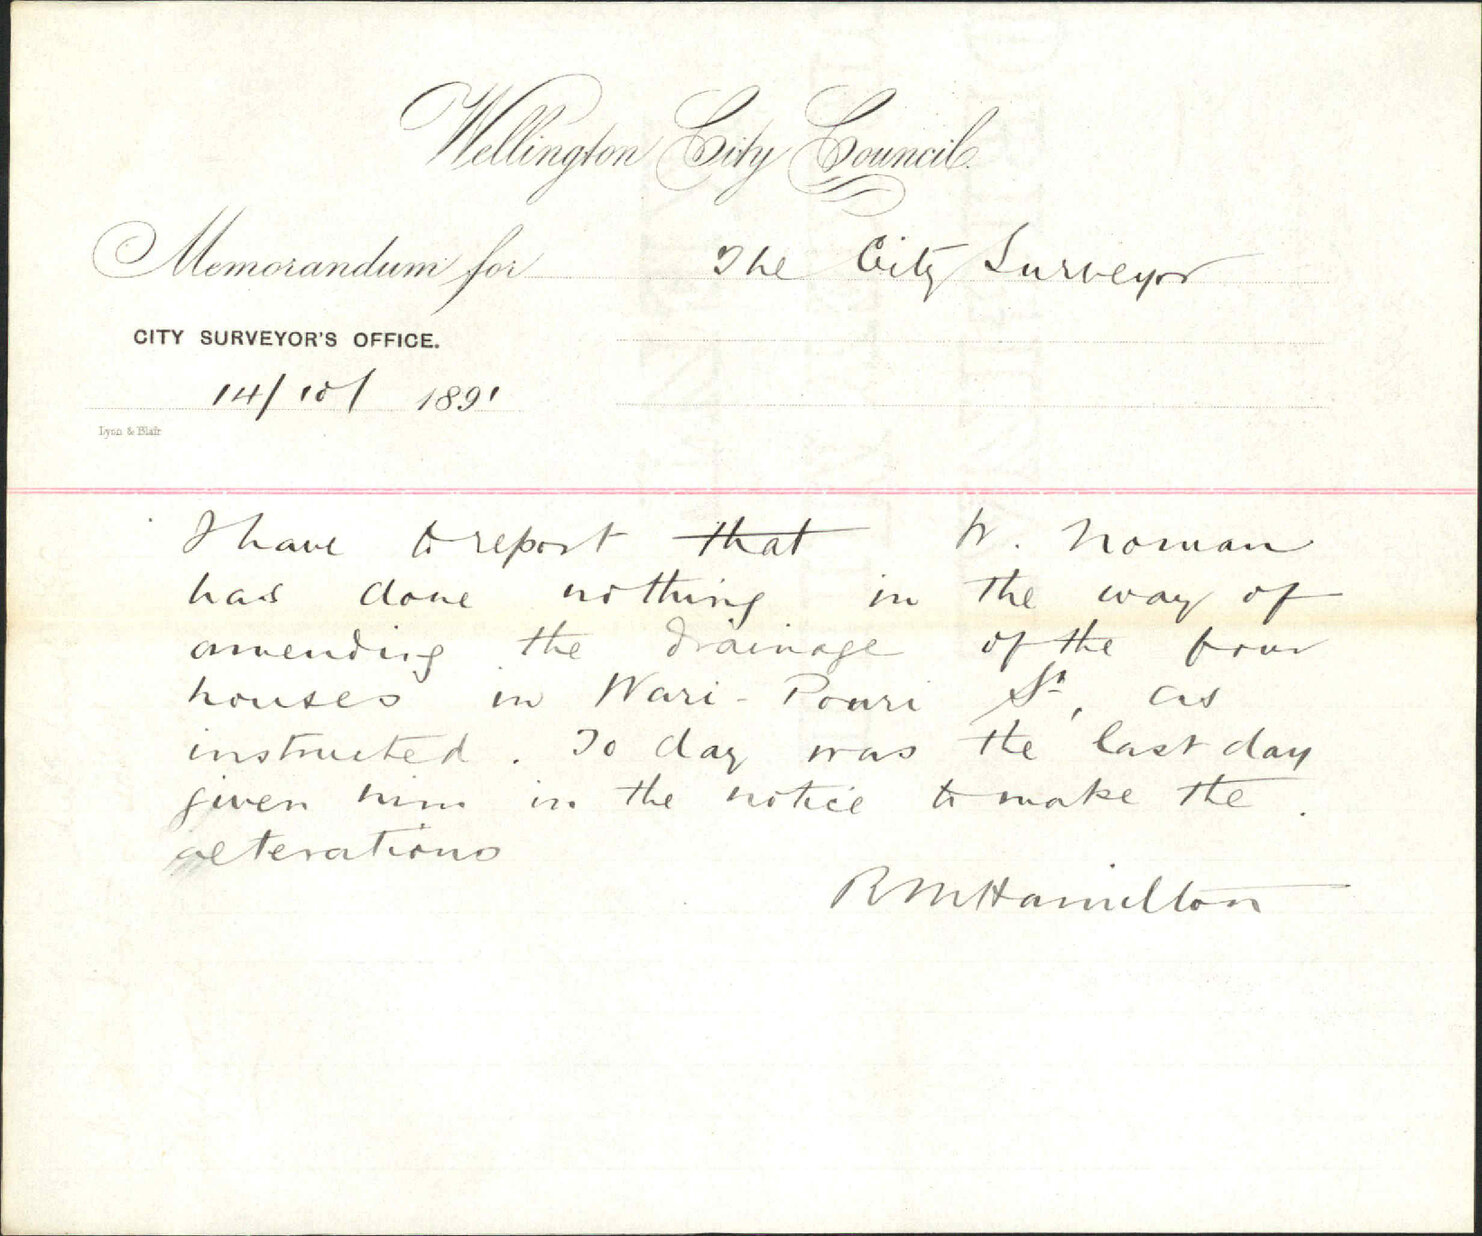 Wellington City Council.
Memorandum for The City Surveyor
CITY SURVEYOR'S OFFICE.
14/10/ 1891
Lyon & Blair
I have to report that W. Noman
has done nothing in the way of
amending the drainage of the four
houses in Wari-Pouri St, as
instructed. To day was the last day
given him in the notice to make the
alterations
R M Hamilton